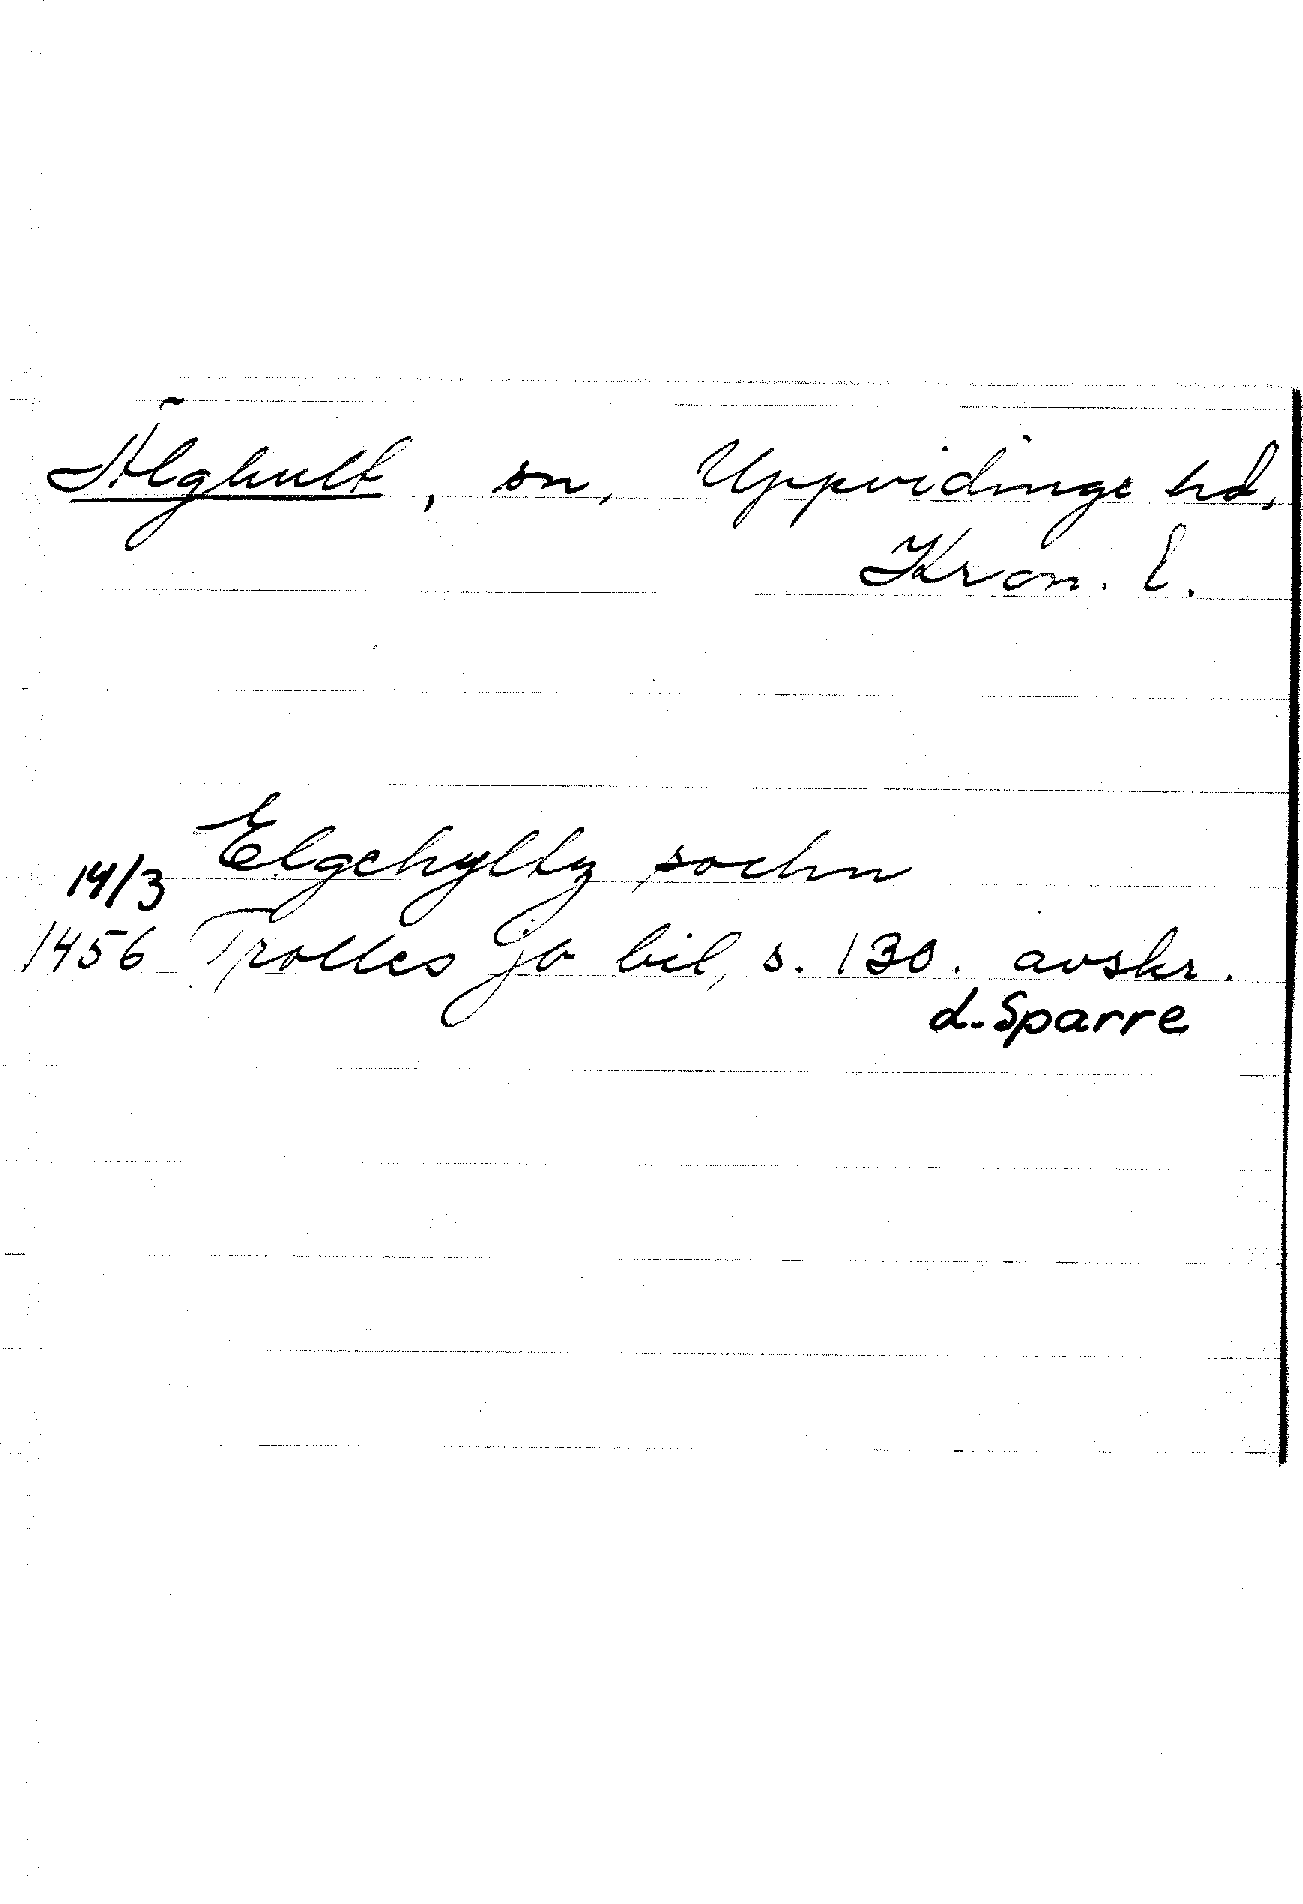 Älghult, sn, Uppvidinge hd,
Kron. l.
Elgehyltz sochn
14/3
1456 Trolles jb bil, s. 130. avskr.
L. Sparre